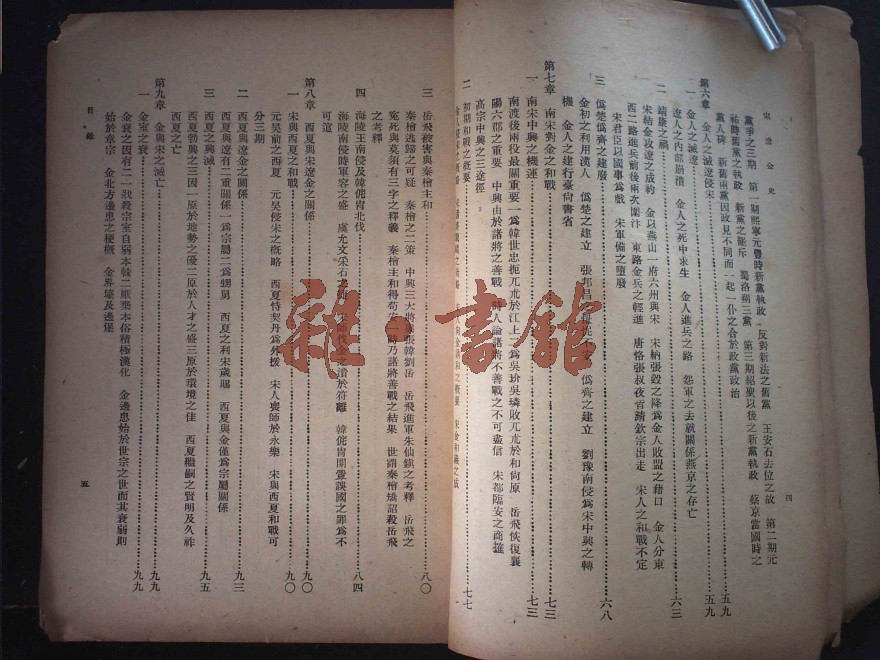 宋遼金史
四
黨爭之三期 第一期熙寧元豐時新黨執政 反對新法之舊黨 王安石去位之故 第二期元
祐時舊黨之執政 新黨之罷斥 蜀洛朔三黨 第三期紹聖以後之新黨執政 蔡京當國時之
黨人碑 新舊兩黨因政見不同而一起一仆之合於政黨政治
第六章 金人之滅遼侵宋 五九
一 金人之滅遼 五九
遼人之內部崩潰 金人之死中求生 金人進兵之路 怨軍之去就關係燕京之存亡
二 靖康之禍 六三
宋結金攻遼之成約 金以燕山一府六州與宋 宋納張瑴之降爲金人敗盟之藉口 金人分東
西二路進兵前後兩次圍汴 東路金兵之輕進 唐恪張叔夜首請欽宗出走 宋人之和戰不定
宋君臣以國事爲戲 宋軍備之墮廢
三 僞楚僞齊之建廢 六八
金初之利用漢人 僞楚之建立 張邦昌 僞齊之建立 劉豫南侵爲宋中興之轉
機 金人之建行臺尙書省
第七章 南宋對金之和戰 七三
一 南宋中興之機運 七三
南渡後兩役最關重要 一爲韓世忠扼兀朮於江上 二爲吳玠吳璘敗兀朮於和尙原 岳飛恢復襄
陽六郡之重要 中興由於諸將之善戰 時人論諸將不善戰之不可盡信 宋都臨安之商榷
高宗中興之三途徑
二 初期和戰之概要 七七
三 岳飛被害與秦檜主和 八〇
秦檜逃歸之可疑 秦檜之二策 中興三大將 張韓劉岳 岳飛進軍朱仙鎭之考釋 岳飛之
冤死與莫須有三字之釋義 秦檜主和得苟安 時乃諸將善戰之結果 世謂秦檜矯詔殺岳飛
之考釋
四 海陵王南侵及韓侂冑北伐 八四
海陵南侵時軍容之盛 虞允文采石之 宋師伐金之潰於符離 韓侂冑開釁誤國之罪爲不
可逭
第八章 西夏與宋遼金之關係 九〇
一 宋與西夏之和戰 九〇
元昊前之西夏 元昊侵宋之概略 西夏恃契丹爲外援 宋人喪師於永樂 宋與西夏和戰可
分三期
二 西夏與遼金之關係 九三
西夏與遼有二重關係一爲宗屬二爲甥舅 西夏之利宋歲賜 西夏與金僅爲宗屬關係
三 西夏之興滅 九五
西夏勃興之三因一原於地勢之優二原於人才之盛三原於環境之佳 西夏嗣之賢明及久祚
西夏之亡
第九章 金與南宋之滅亡 九九
一 金室之衰 九九
金衰之因有二一戕殺宗室自弱本榦二厭棄本俗積極漢化 金邊患始於世宗之世而其衰弱則
始於章宗 金北方邊患之梗槪 金界壕及邊堡
目錄
五
雜·書館